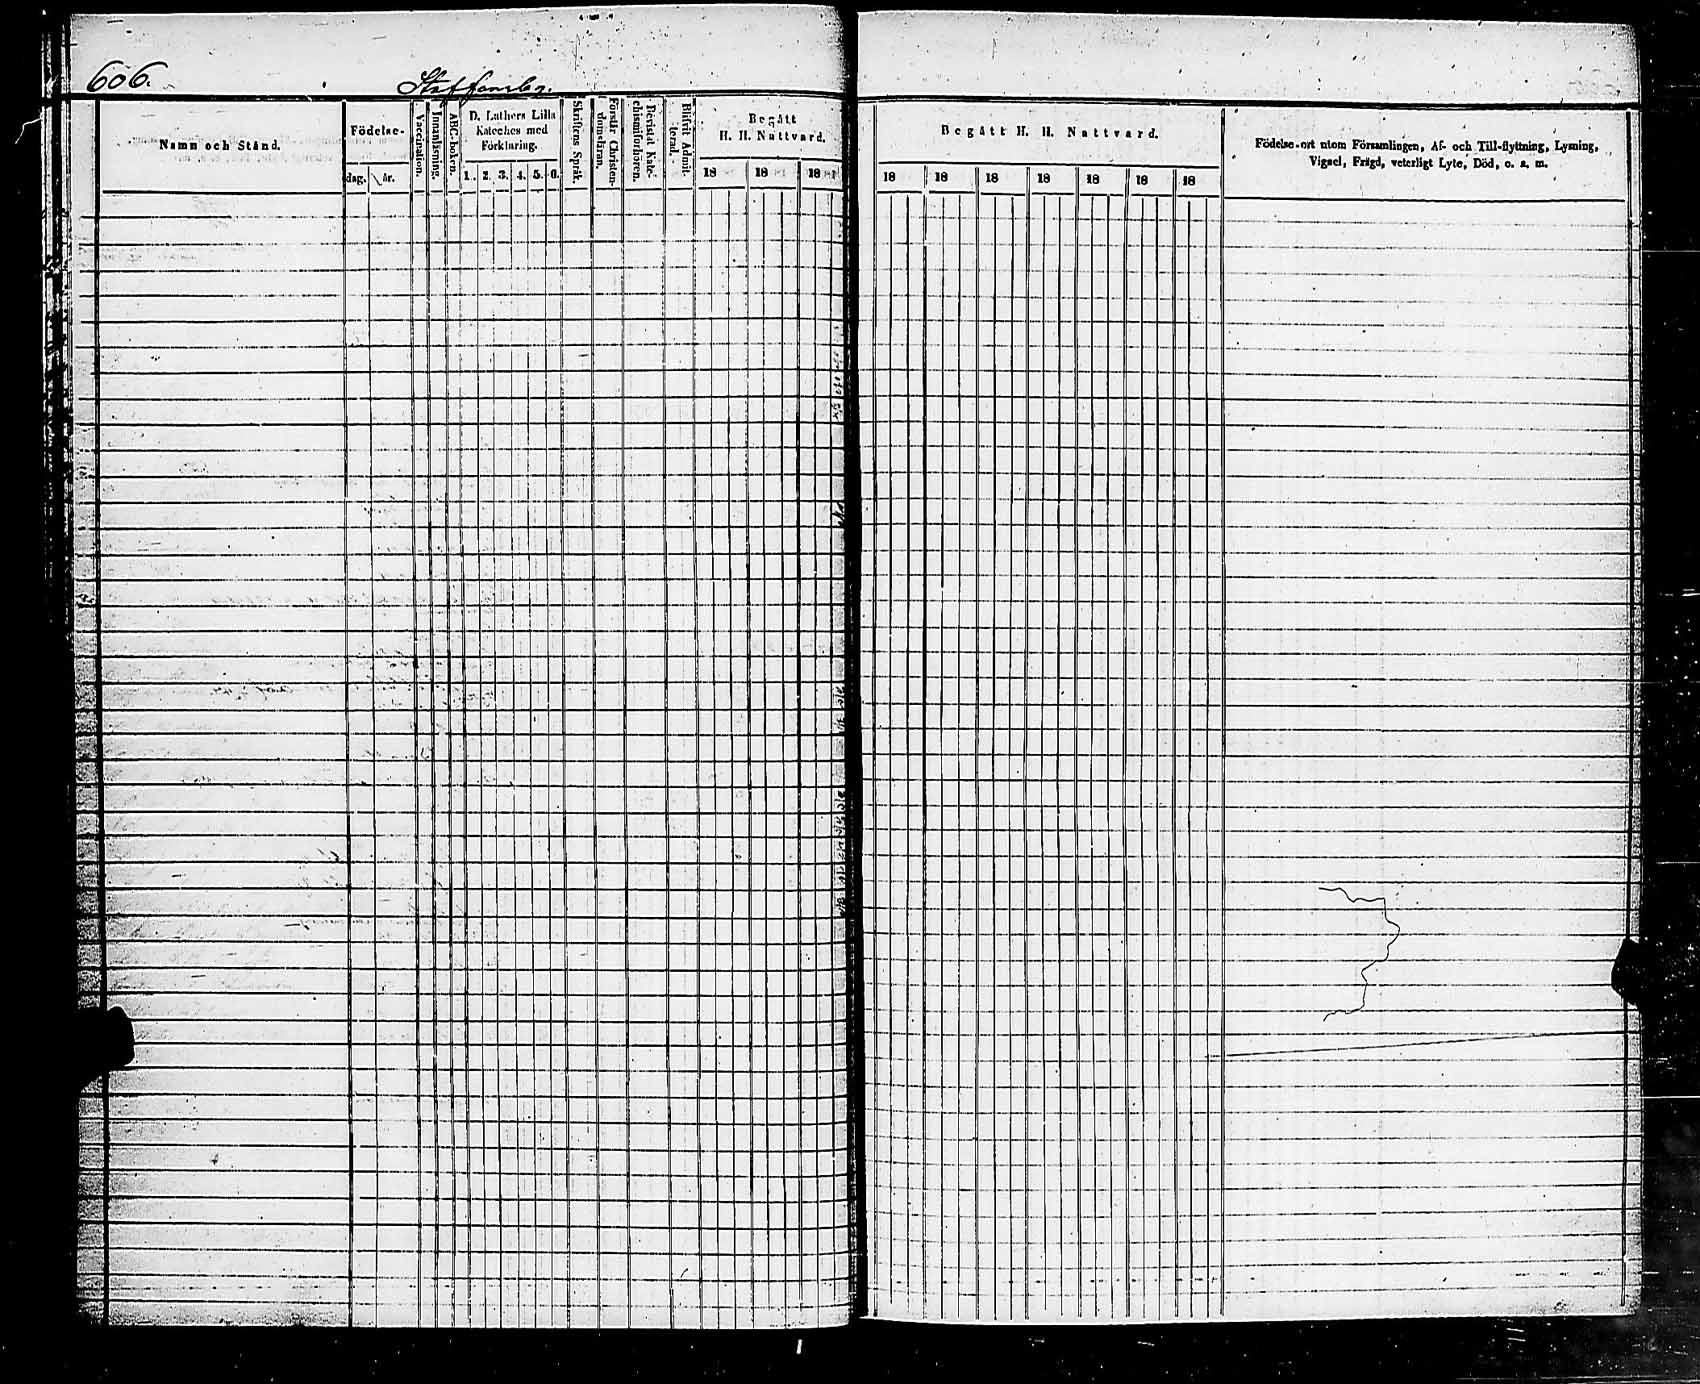 606.
Staffansby.
Namn och Stånd.
Födelse-
dag. år.
Vaccination.
Innanläsning.
ABC-boken.
D. Luthers Lilla
Kateches med
Förklaring.
1. 2. 3. 4. 5. 6.
Skriftens Språk.
Förstår Christen-
domsläran.
Bevistat Kate-
chismiförhören.
Blifvit Admit-
terad.
Begått
H. H. Nattvard.
18 18 18
Begått H. H. Nattvard.
18 18 18 18 18 18 18
Födelse-ort utom Församlingen, Af- och Till-flyttning, Lysning,
Vigsel, Frägd, veterligt Lyte, Död, o. s. m.